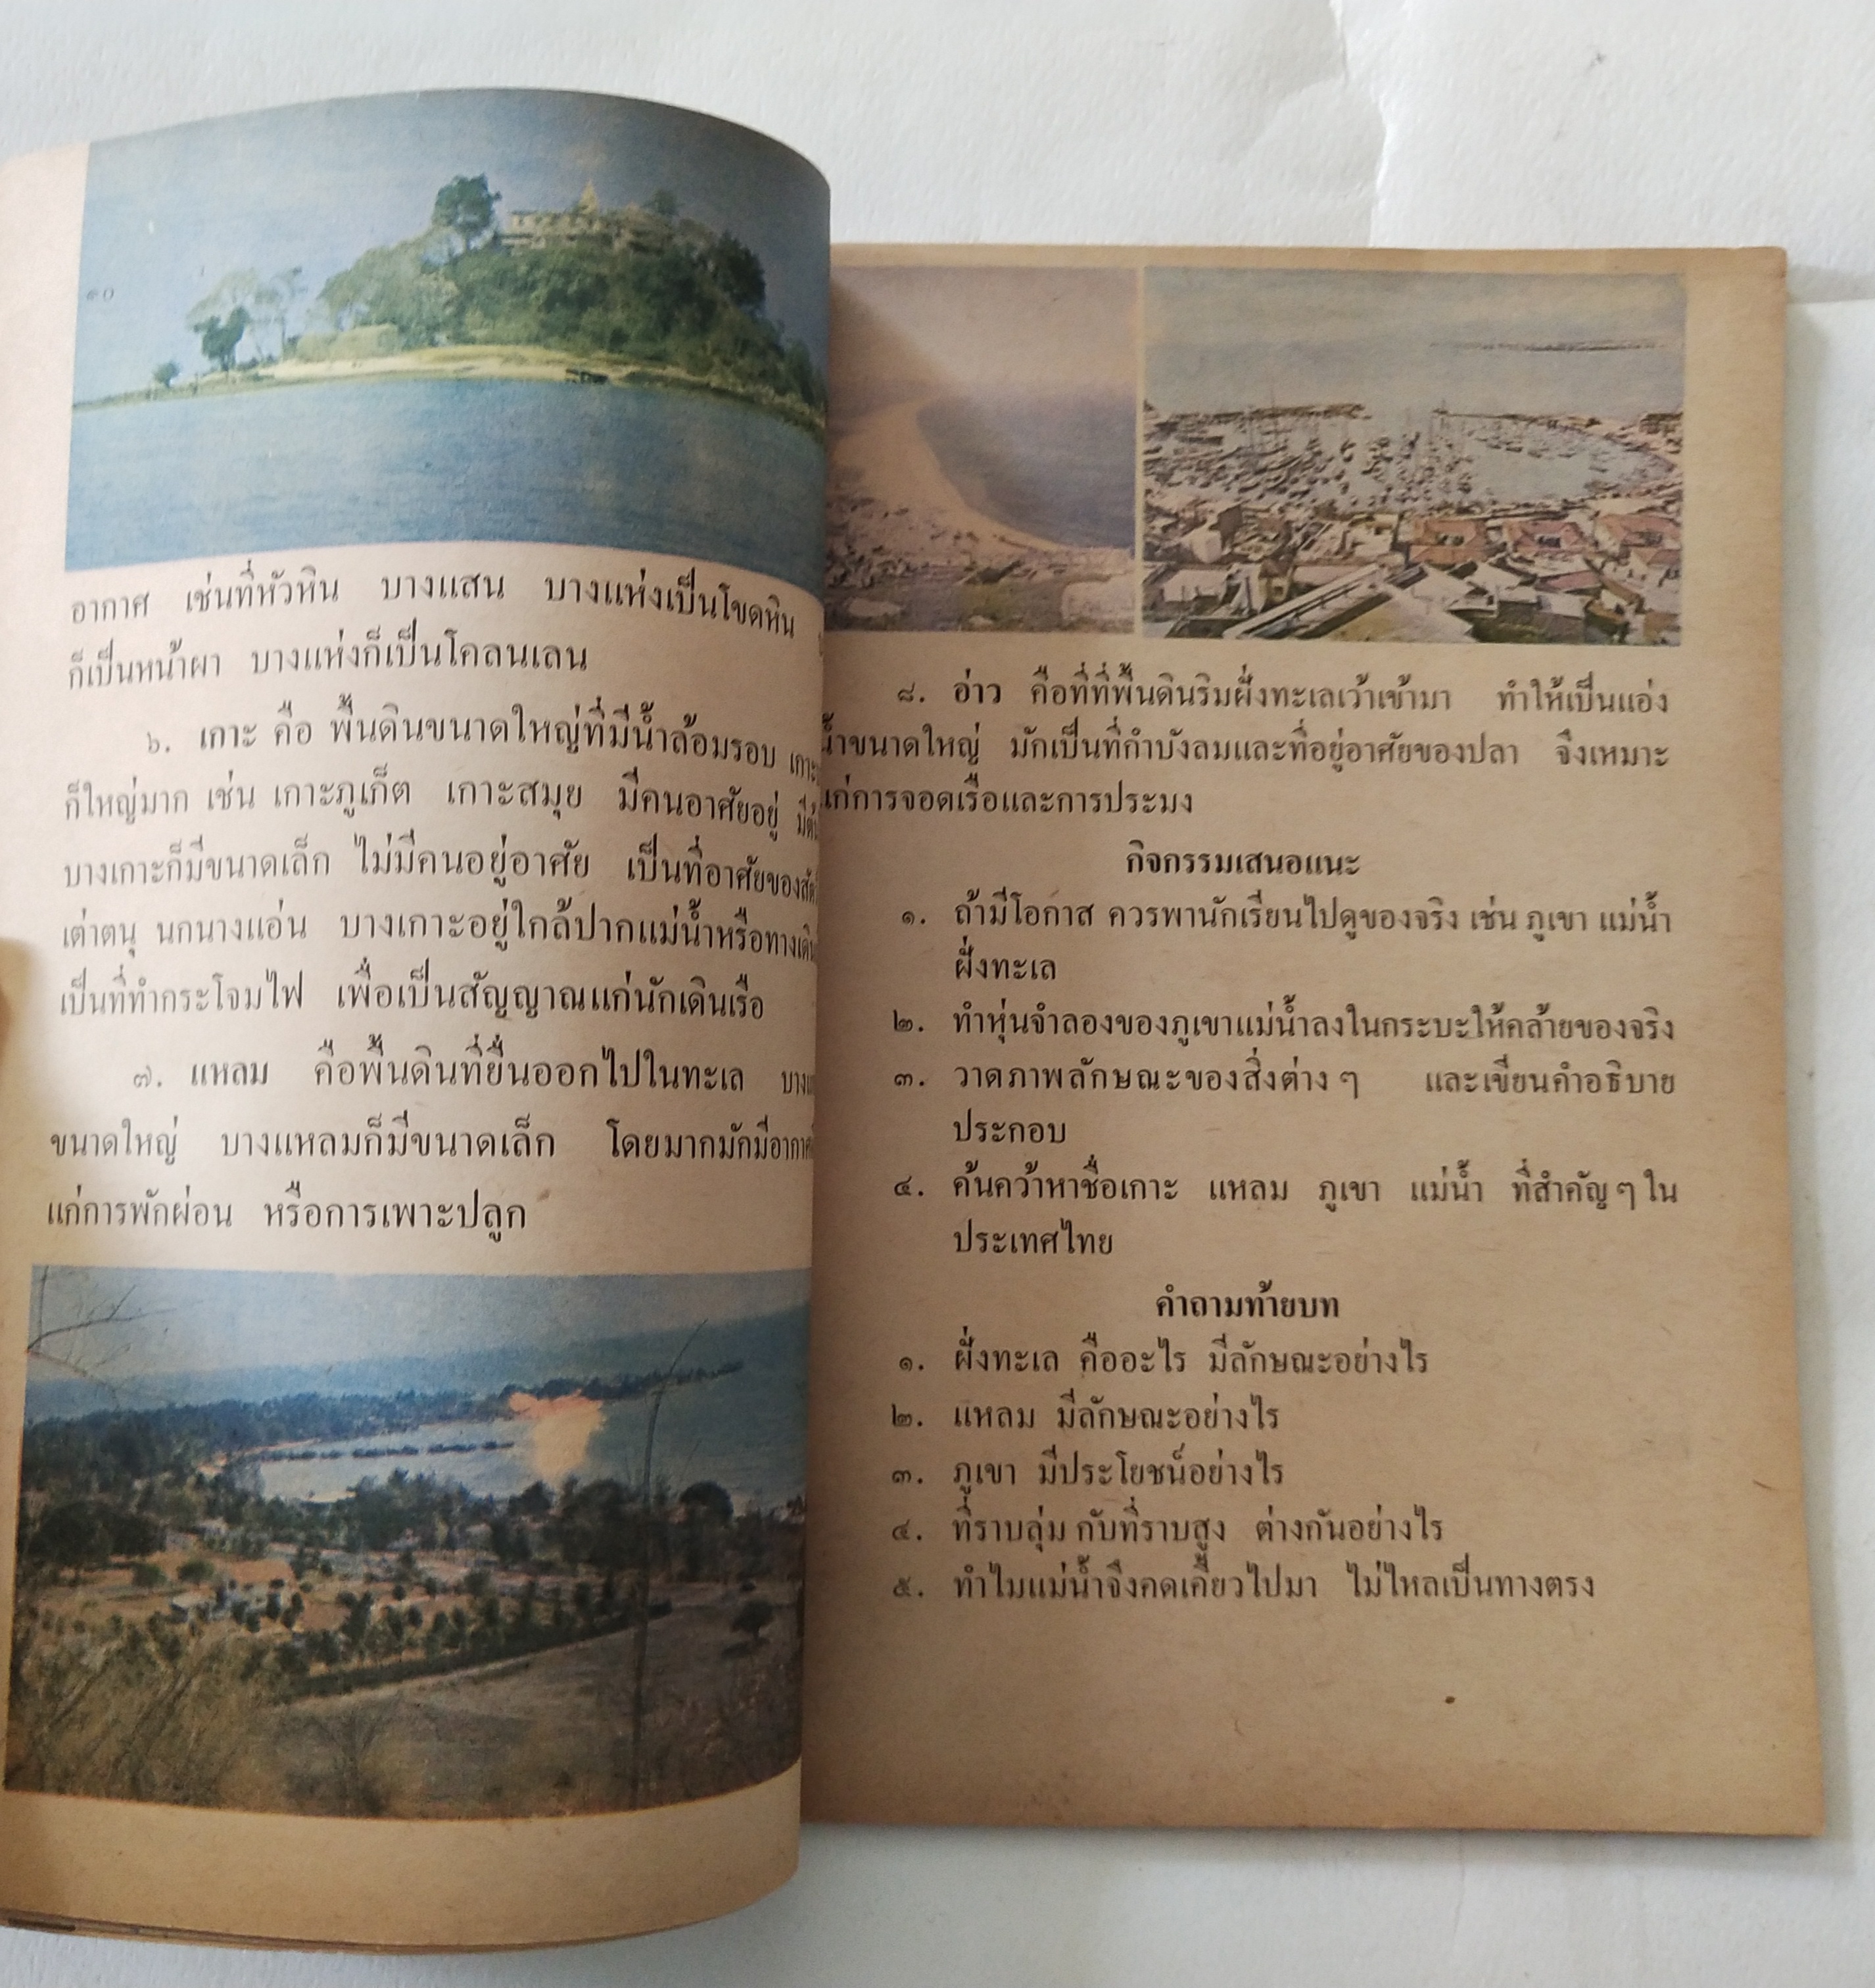 ๑๐
อากาศ เช่นที่หัวหิน บางแสน บางแห่งเป็นโขดหิน
ก็เป็นหน้าผา บางแห่งก็เป็นโคลนเลน
๖. เกาะ คือ พื้นดินขนาดใหญ่ที่มีน้ำล้อมรอบ เกาะ
ก็ใหญ่มาก เช่น เกาะภูเก็ต เกาะสมุย มีคนอาศัยอยู่
บางเกาะก็มีขนาดเล็ก ไม่มีคนอยู่อาศัย เป็นที่อาศัยของ
เต่าตนุ นกนางแอ่น บางเกาะอยู่ใกล้ปากแม่น้ำหรือทาง
เป็นที่ทำกระโจมไฟ เพื่อเป็นสัญญาณแก่นักเดินเรือ
๗. แหลม คือพื้นดินที่ยื่นออกไปในทะเล
ขนาดใหญ่ บางแหลมก็มีขนาดเล็ก โดยมากมักมีอากาศ
แก่การพักผ่อน หรือการเพาะปลูก
๘. อ่าว คือที่ที่พื้นดินริมฝั่งทะเลเว้าเข้ามา ทำให้เป็นแอ่ง
น้ำขนาดใหญ่ มักเป็นที่กำบังลมและที่อยู่อาศัยของปลา จึงเหมาะ
แก่การจอดเรือและการประมง
กิจกรรมเสนอแนะ
๑. ถ้ามีโอกาส ควรพานักเรียนไปดูของจริง เช่น ภูเขา แม่น้ำ
ฝั่งทะเล
๒. ทำหุ่นจำลองของภูเขาแม่น้ำลงในกระบะให้คล้ายของจริง
๓. วาดภาพลักษณะของสิ่งต่าง ๆ และเขียนคำอธิบาย
ประกอบ
๔. ค้นคว้าหาชื่อเกาะ แหลม ภูเขา แม่น้ำ ที่สำคัญ ๆ ใน
ประเทศไทย
คำถามท้ายบท
๑. ฝั่งทะเล คืออะไร มีลักษณะอย่างไร
๒. แหลม มีลักษณะอย่างไร
๓. ภูเขา มีประโยชน์อย่างไร
๔. ที่ราบลุ่ม กับที่ราบสูง ต่างกันอย่างไร
๕. ทำไมแม่น้ำจึงคดเคี้ยวไปมา ไม่ไหลเป็นทางตรง